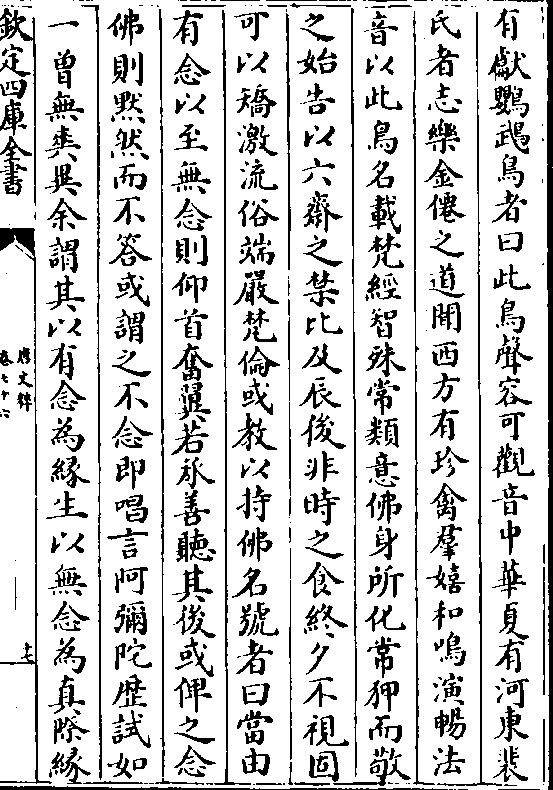 有獻鸚鵡鳥者曰此鳥聲容可觀音中華夏有河東裴
氏者志樂金僊之道聞西方有珍禽羣嬉和鳴演暢法
音以此鳥名載梵經智殊常類意佛身所化常狎而敬
之始告以六齋之禁比及辰後非時之食終夕不視固
可以矯激流俗端嚴梵倫或教以持佛名號者曰當由
有念以至無念則仰首奮翼若承善聽其後或俾之念
佛則默然而不答或謂之不念即唱言阿彌陀歷試如
一曾無爽異余謂其以有念為緣生以無念為真際緣
欽定四庫全書
唐文粹
卷七十六
十七